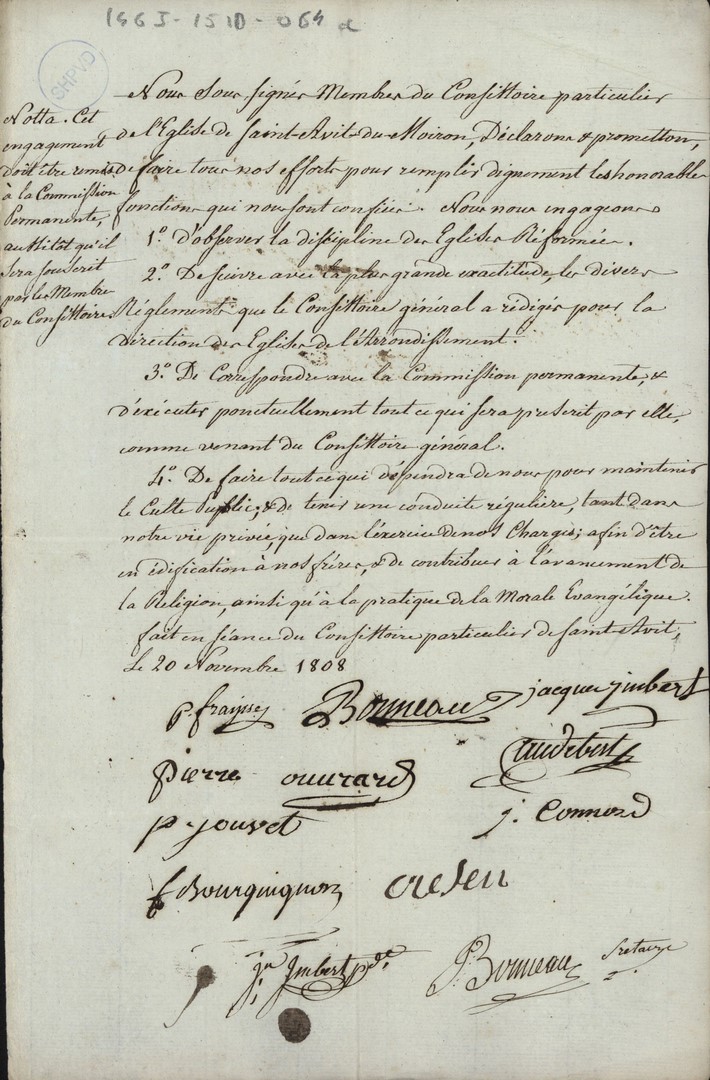 146J-151D-064 a
SHPVD
Notta. Cet
engagement
doit être remis
à la Commission
Permanente,
aussitôt qu'il
sera souscrit
par les Membre
du Consistoire
Nous Sous, signés Membres du Consistoire particulier
de l'Eglise de Saint-Avit-du-Moiron, Déclarons & promettons,
de faire tous nos efforts pour remplir dignement les honorables
fonctions qui nous sont confiées. Nous nous engageons
1.° d'observer la discipline des Eglises Réformées.
2.° De suivre avec la plus grande exactitude, les divers
Réglements que le Consistoire général a rédigés pour la
direction des Eglises de l'Arrondissement.
3.° De Correspondre avec la Commission permanente, &
d'exécuter ponctuellement tout ce qui sera prescrit par elle,
comme venant du Consistoire général.
4.° De faire tout ce qui dépendra de nous pour maintenir
le Culte public, & de tenir une conduite régulière, tant dans
notre vie privée, que dans l'exercice de nos Charges; afin d'être
en édification à nos frères, & de contribuer à l'avancement de
la Religion, ainsi qu'à la pratique de la Morale Evangélique.
fait en séance du Consistoire particulier de Saint Avit,
Le 20 Novembre 1808
p. fraysse Bonneau jacque jmbert
pierre ouvrard Audebert
p. jouvet j. Connord
f Bourguignon
jn Jmbert pde. P. Bonneau Sretaire